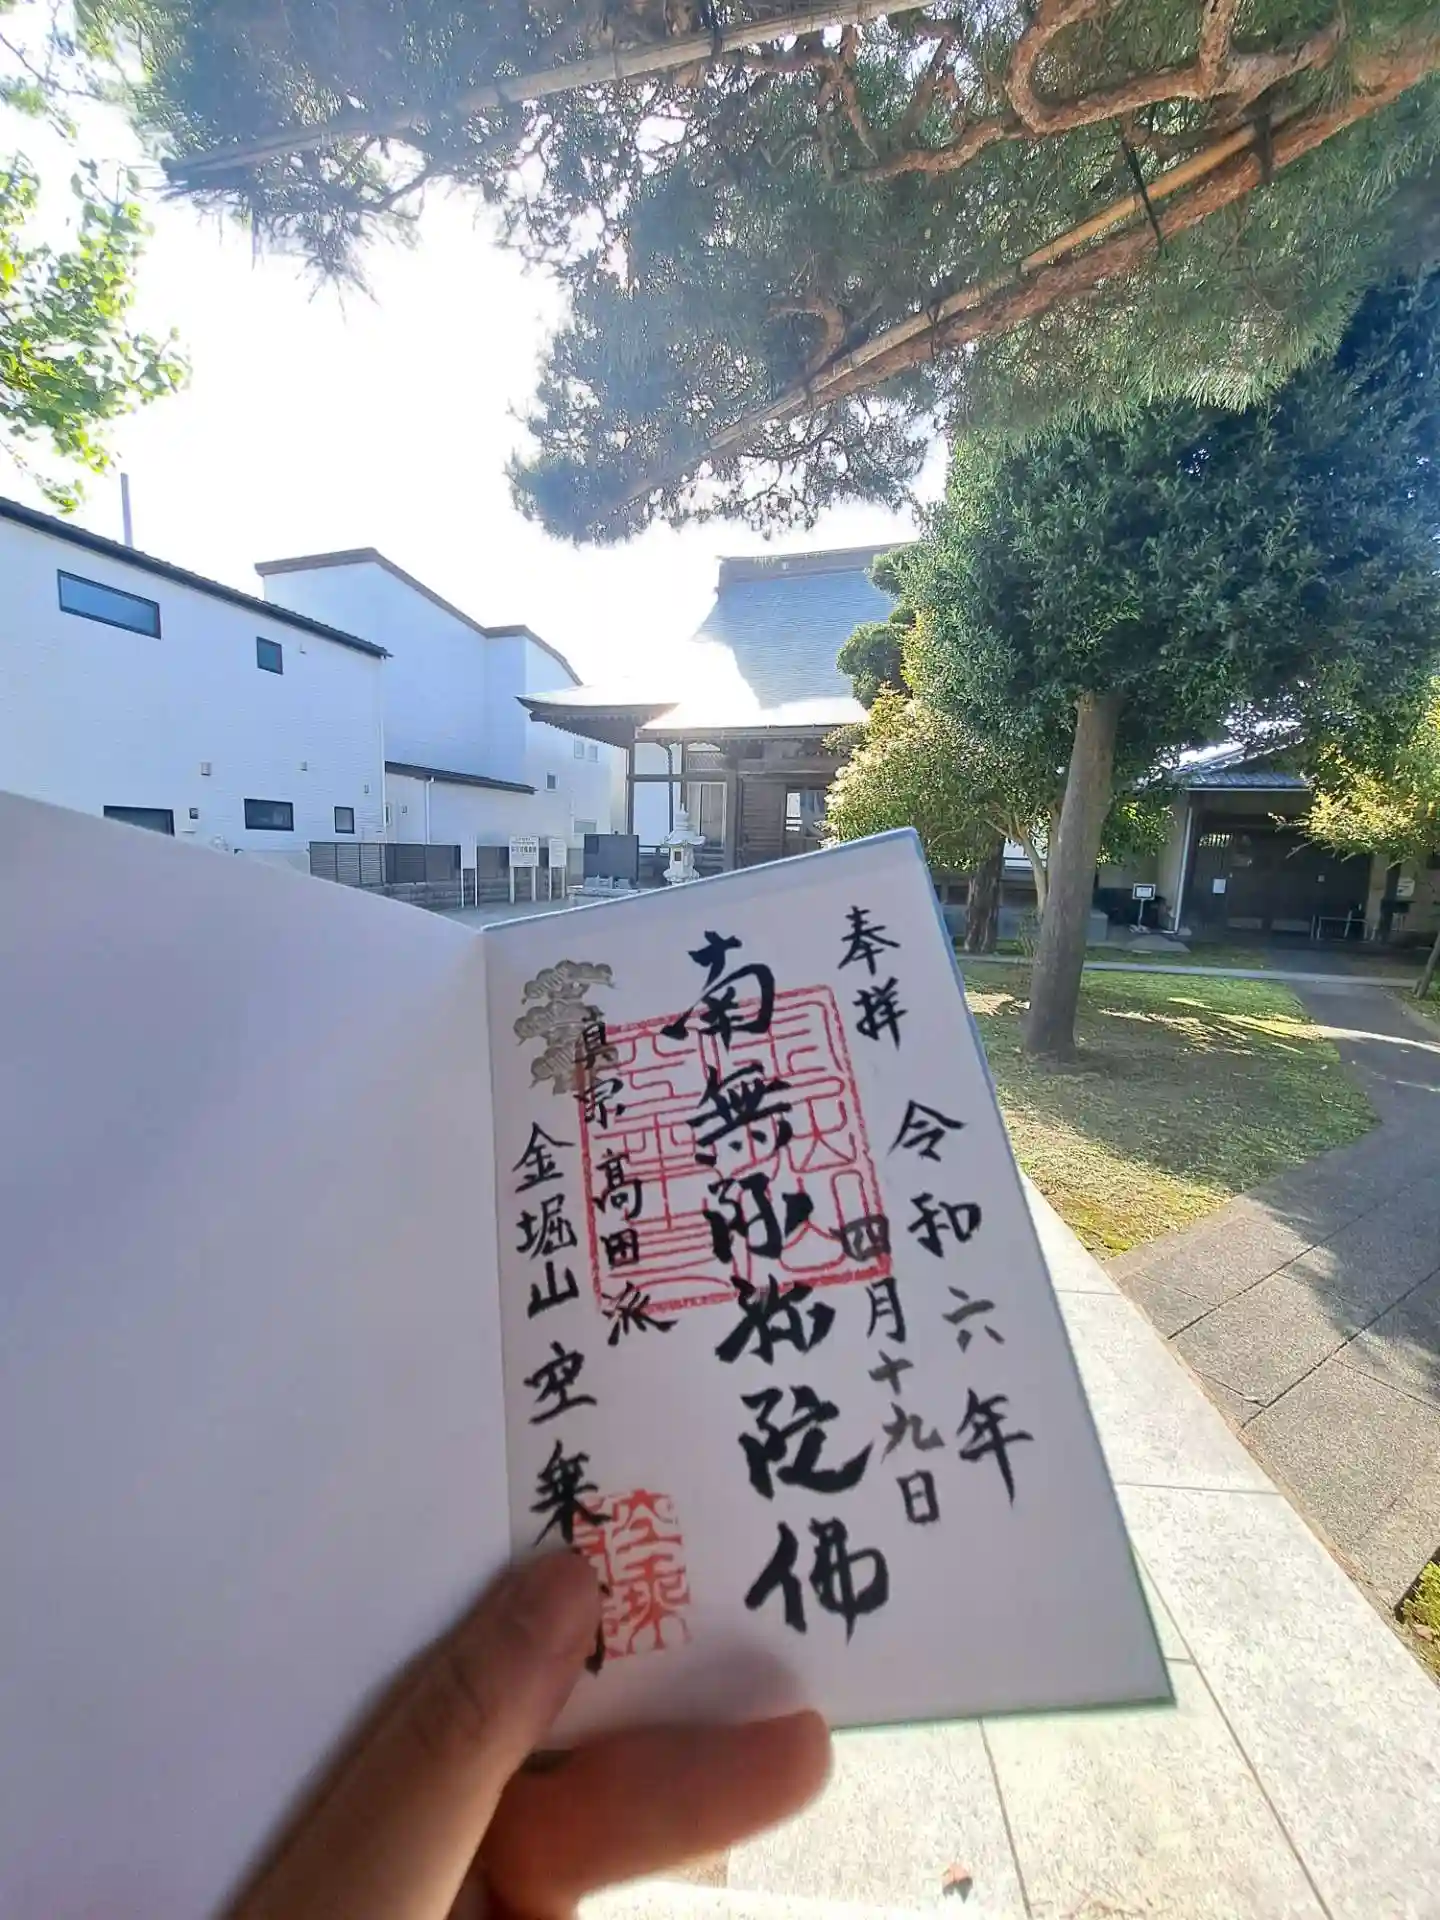 奉拝
令和六年
四月十九日
南無阿弥陀佛
真宗高田派
金堀山空乗